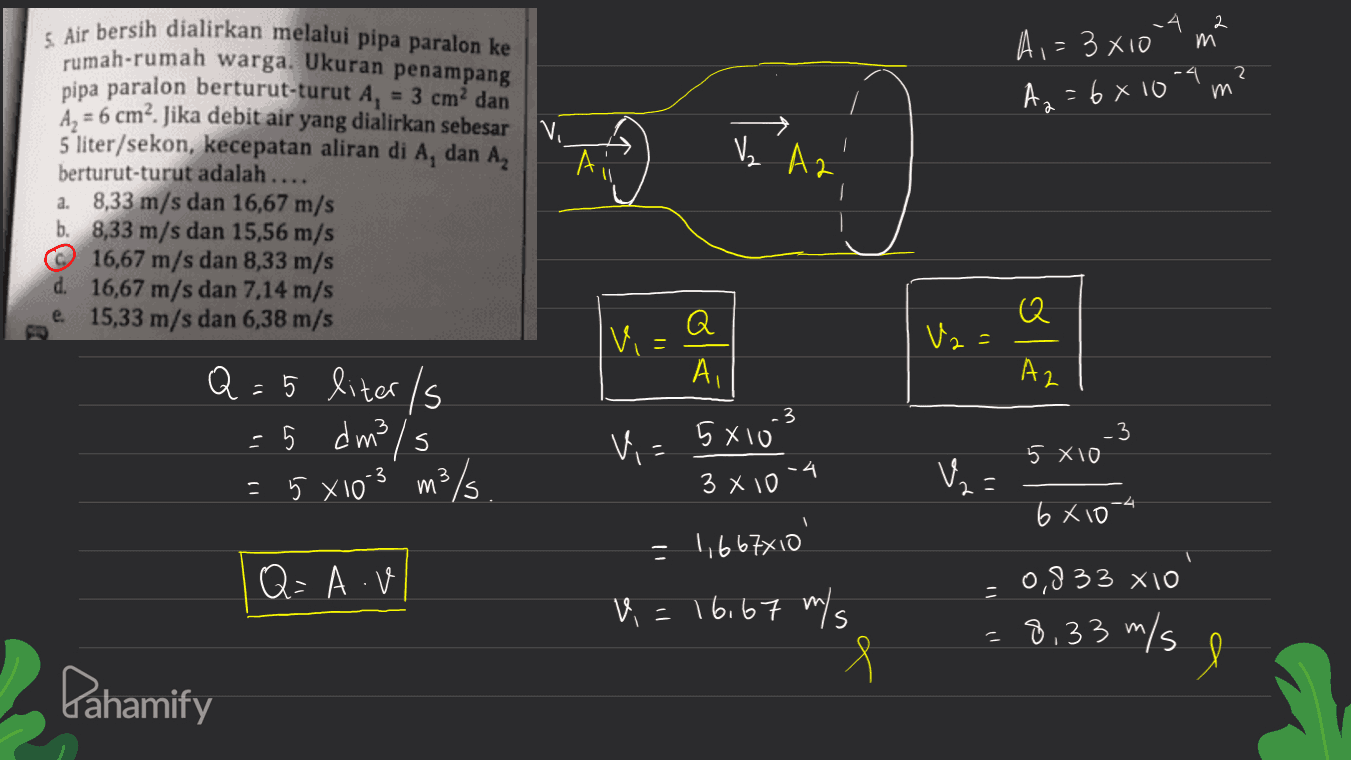 5. Air bersih dialirkan melalui pipa paralon ke
rumah-rumah warga. Ukuran penampang
pipa paralon berturut-turut A₁ = 3 cm² dan
A₂ = 6 cm². Jika debit air yang dialirkan sebesar
5 liter/sekon, kecepatan aliran di A₁ dan A₂
berturut-turut adalah ....
a. 8,33 m/s dan 16,67 m/s
b. 8,33 m/s dan 15,56 m/s
c. 16,67 m/s dan 8,33 m/s
d. 16,67 m/s dan 7,14 m/s
e. 15,33 m/s dan 6,38 m/s
A₁ = 3 x 10⁻⁴ m²
A₂ = 6 x 10⁻⁴ m²
V₁ A₁ V₂ A₂
Q = 5 liter/s
= 5 dm³/s
= 5 x 10⁻³ m³/s.
Q = A . V
V₁ = Q / A₁
V₁ = 5 x 10⁻³ / 3 x 10⁻⁴
= 1,667 x 10¹
V₁ = 16,67 m/s
V₂ = Q / A₂
V₂ = 5 x 10⁻³ / 6 x 10⁻⁴
= 0,833 x 10¹
= 8,33 m/s
Pahamify